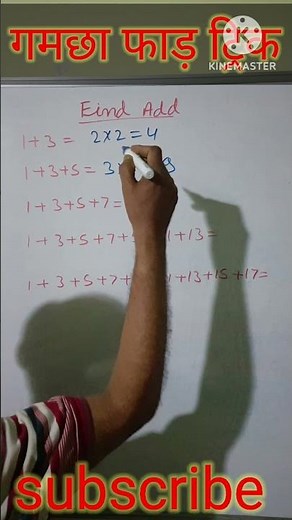 गमछा फाड़ ट्रिक
KINEMASTER
Eind Add
1+3= 2×2=4
1+3+5= 3
1+3+5+7=
1+3+5+7+ 1+13=
1+3+5+7+ 1+13+15+17=
subscribe